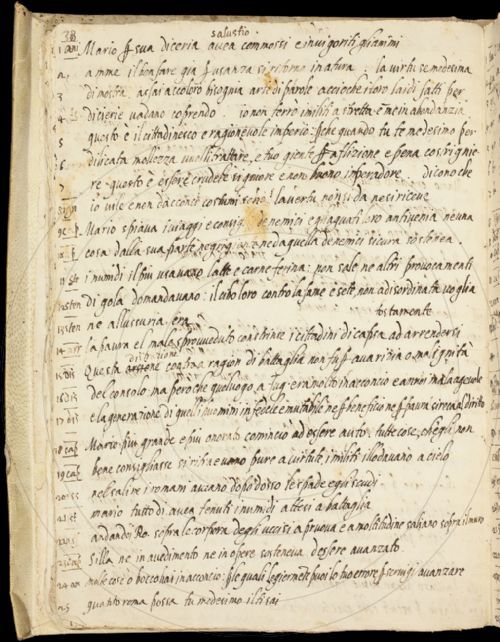 38 salustio
1 Mario ꝑ sua diceria auea commossi e inuigoriti gli animi
2 a mme il bonfare gia ꝑ usanza si ritorno in natura. la virtu se medesima
3 di mostra, assai accolco bisognia arte di parole accioche i loro laidi fatti per
4 diцerie uadano coprendo. io non ferro i militi a stretta e me in abondanzia
5 questo è il cittadinesco e ragioneuole imperio: ꝑche quando tu te medesimo per
6 dilicata mollezza uuoli trattare, e tuo giente ꝑ aflizione e pena costrignie
7 re questo è essere crudele signiore e non buono imperadore. dicono che
io vile e non dacconci costumi sono. la vertu non si da ne si riceue
Mario spiaua i uiaggi e consigli de nemici e gli aguati. loro antiuenia neuna
cosa dalla sua parte negrigente ne da quella de nemici sicura
11 i numidi il piu usauano latte e carne ferina: non sale ne altri prouocamenti
12 di gola domandauano: il cibo loro contro la fame e sete non a disordinata voglia
13 ne allussuria era tostamente
14 la paura el male sproueduto constrinse i cittadini di capsa ad arrendersi
15 Questa contra ragion di battaglia non fu ꝑ auaritia o malignita
16 del consolo ma però che quel luogo a Iug. era molto in acconcio e a noi malageuole
17 e la generazione di quelli huomini infedele e mutabile ne ꝑ beneficio ne ꝑ paura si recaua al diritto
18 Mario piu grande e piu onorato comincio ad essere auuto. tutte cose, chegli non
19 bene consigliasse si ritraeuano pure a virtute, i militi illodauano a cielo
20 nel salire i romani aueano dopo dosso le spade e gli scudi
21 mario tutto di auea tenuti i numidi attesi a battaglia
22 andando Ro. sopra le corpora degli uccisi a pruoua e a moltitudine saliano sopra il muro
23 Silla ne in auedimento ne in opere sosteneua dessere auanzato.
24 molte cose o boccho ai in acconcio: ꝑ le quali legiermente puoi lo tuo errore ꝑ seruigi auanzare
25 quanto roma possa tu medesimo il ti sai